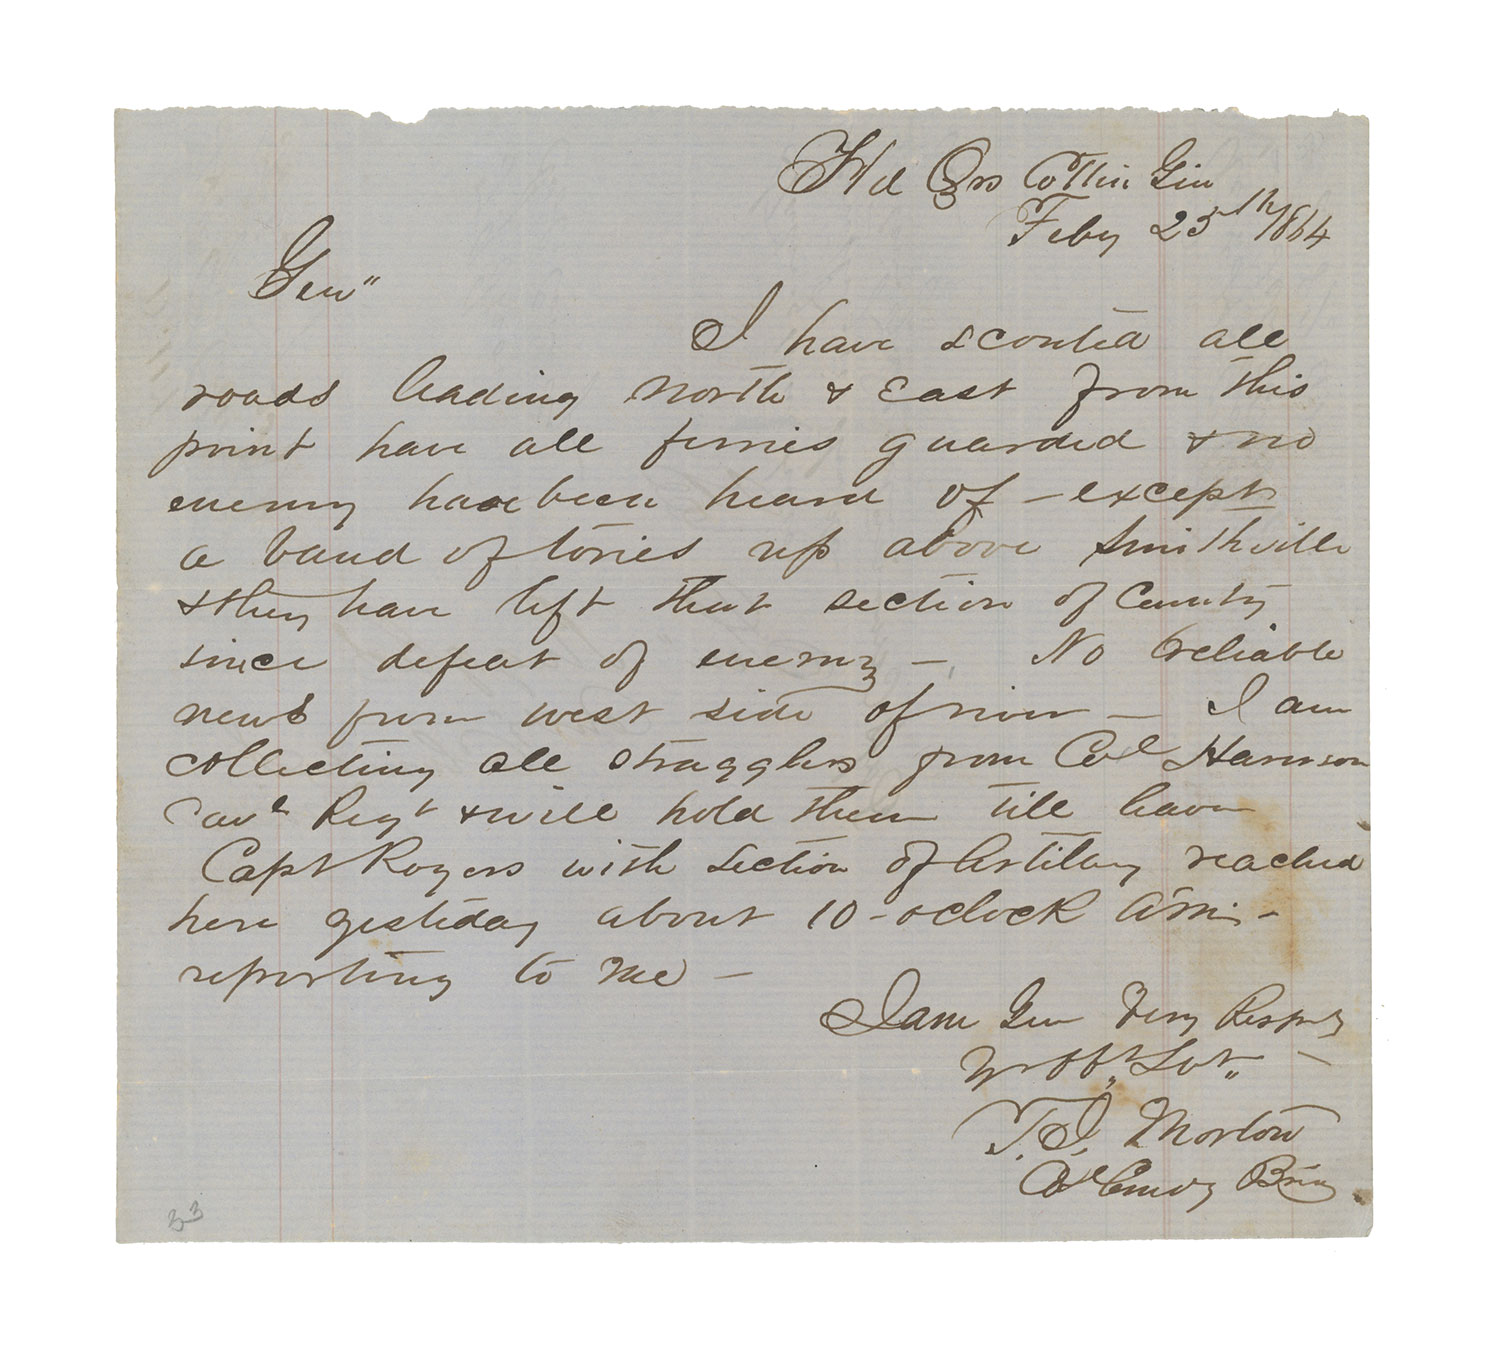 Hd Qrs Cotton Gin
Feby 25th 1864
Gen"
I have scouted all
roads leading North & East from this
point have all ferries guarded & no
enemy have been heard of – except
a band of tories up above Smithville
& they have left that section of County
since defeat of enemy – No reliable
news from west side of river – I am
collecting all stragglers from Col Harrison
Cavl Regt & will hold them till leave
Capt Rogers with section of Artillery reached
here yesterday about 10-oclock A.M. –
reporting to me –
I am Gen Very Respty
Yr Obt Svt –
T.J. Morton
Col Comdg Brig
33